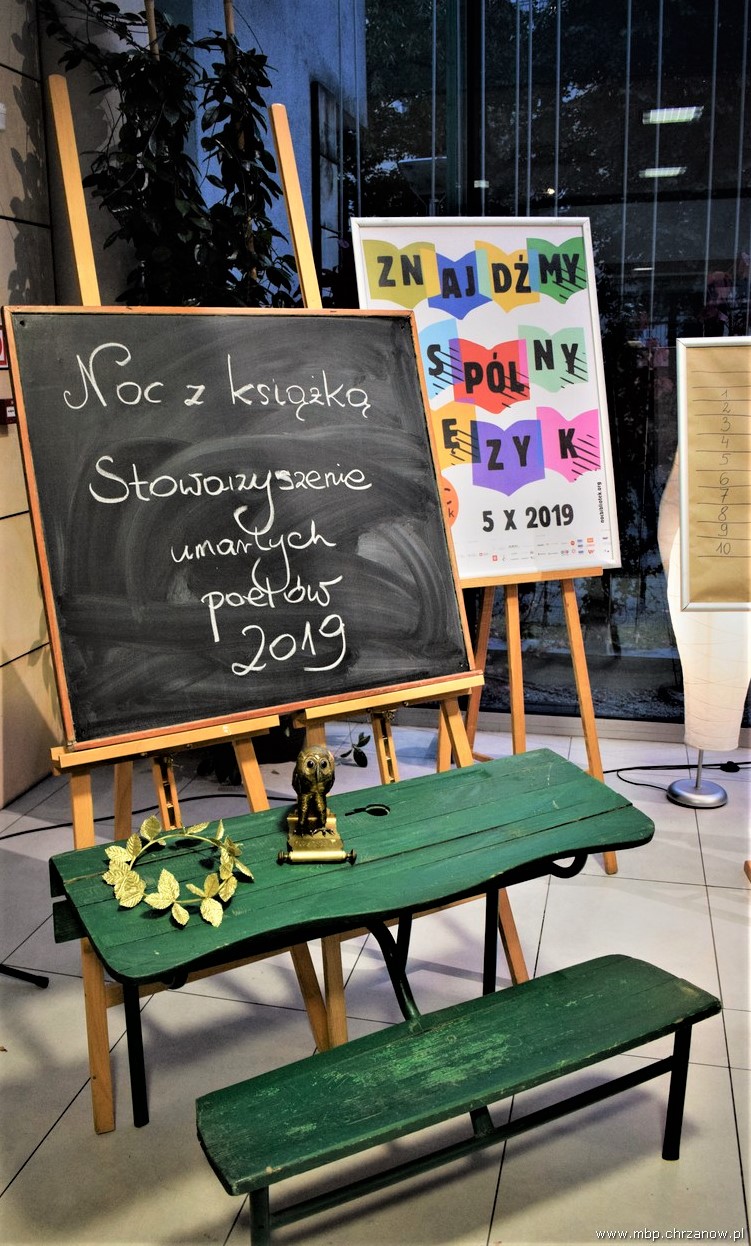 Noc z książką
Stowarzyszenie
umarłych
poetów
2019
ZNAJDŹMY
SPÓLNY
ĘZYK
5 X 2019
nocbibliotek.org
1
2
3
4
5
6
7
8
9
10
www.mbp.chrzanow.pl